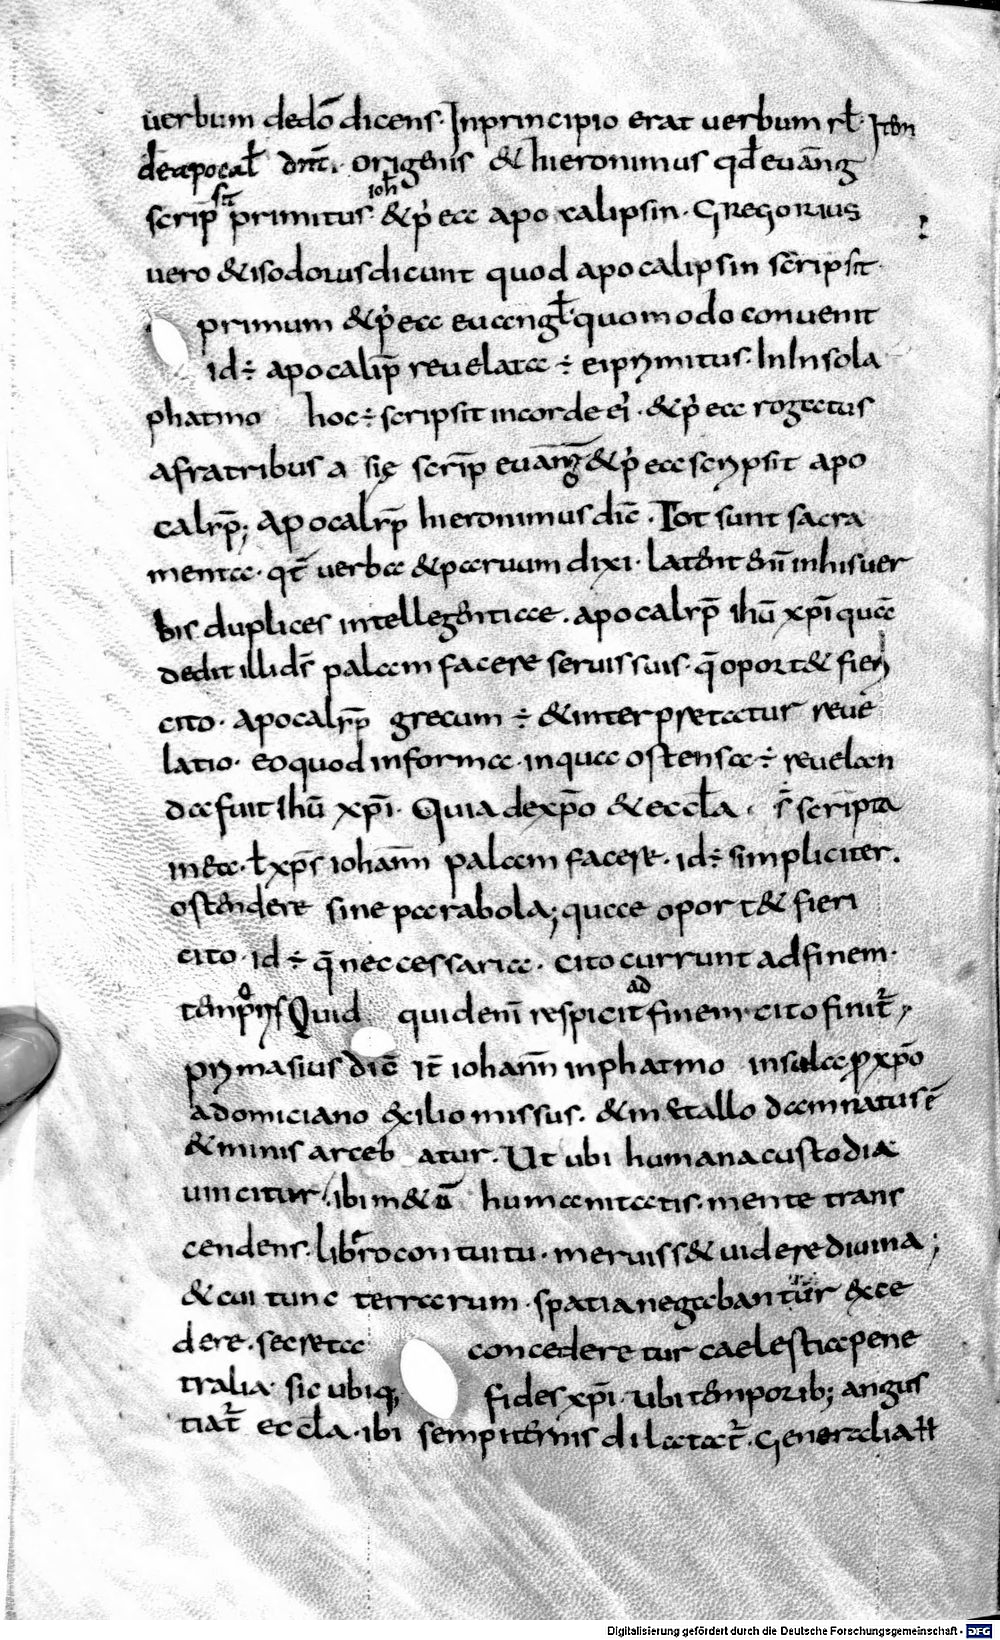 uerbum dedō dicens· Inprincipio erat uerbum rł· Itēm
deapocał dn̄t· origenis & hieronimus qđ euāng
scrip̄sit primitus· ioh̄ & p̓ ecc apocalipsin· Gregorius
uero & isodorus dicunt quod apocalipsin scripsit·
primum & p̓ ecc euangł· quomodo conuenit
id÷ apocalip̄ reuelata ÷ ei primitus· In Insola
phatmo hoc÷ scripsit incorde ei· & p̓ ecc rogatus
afratribus asię scrip̄ euāng & p̓ ecc scripsit apo
calip̄; apocalip̄ hieronimus dic̄· Tot sunt sacra
menta· qt̄ uerba & paruum dixi· latent enī inhis uer
bis duplices intellegentiae· apocalip̄ ihū xp̄i quā
dedit illi dš palam facere seruis suis· q̄ oport& fieri
cito· apocalip̄ grecum ÷ & interpretatur reue
latio· eo quod informa· in qua ostensa ÷ reuelan
da fuit ihū xp̄i· Quia dexp̄o & eccła· scripta
in ea· ł xp̄s iohann̄ palam facere· id÷ simpliciter·
ostendere sine parabola; quae oport& fieri
cito· id ÷ q̄ neccessaria· cito currunt adfinem·
Quid quidem̄ respicit ad finem· cito finit̄,
primasius dic̄ it̄ iohann̄ inphatmo insola ꝓ xp̄o
adomiciano exilio missus· & in &allo damnatus ē
& minis arceb atur· Ut ubi humana custodia
uincitur· ibi m&ā humanitatis· mente trans
cendens· libero contuitu· meruiss& uidere diuina;
& cui tunc terrarum· spatia negabantur exce
dere· secreta concederetur caelestia pene
tralia· sic ubiq; fides xp̄i· ubi temporib; angus
tiat̄ eccła· ibi sempiternis dilatat̄· Generaliaħ
Digitalisierung gefördert durch die Deutsche Forschungsgemeinschaft - DFG